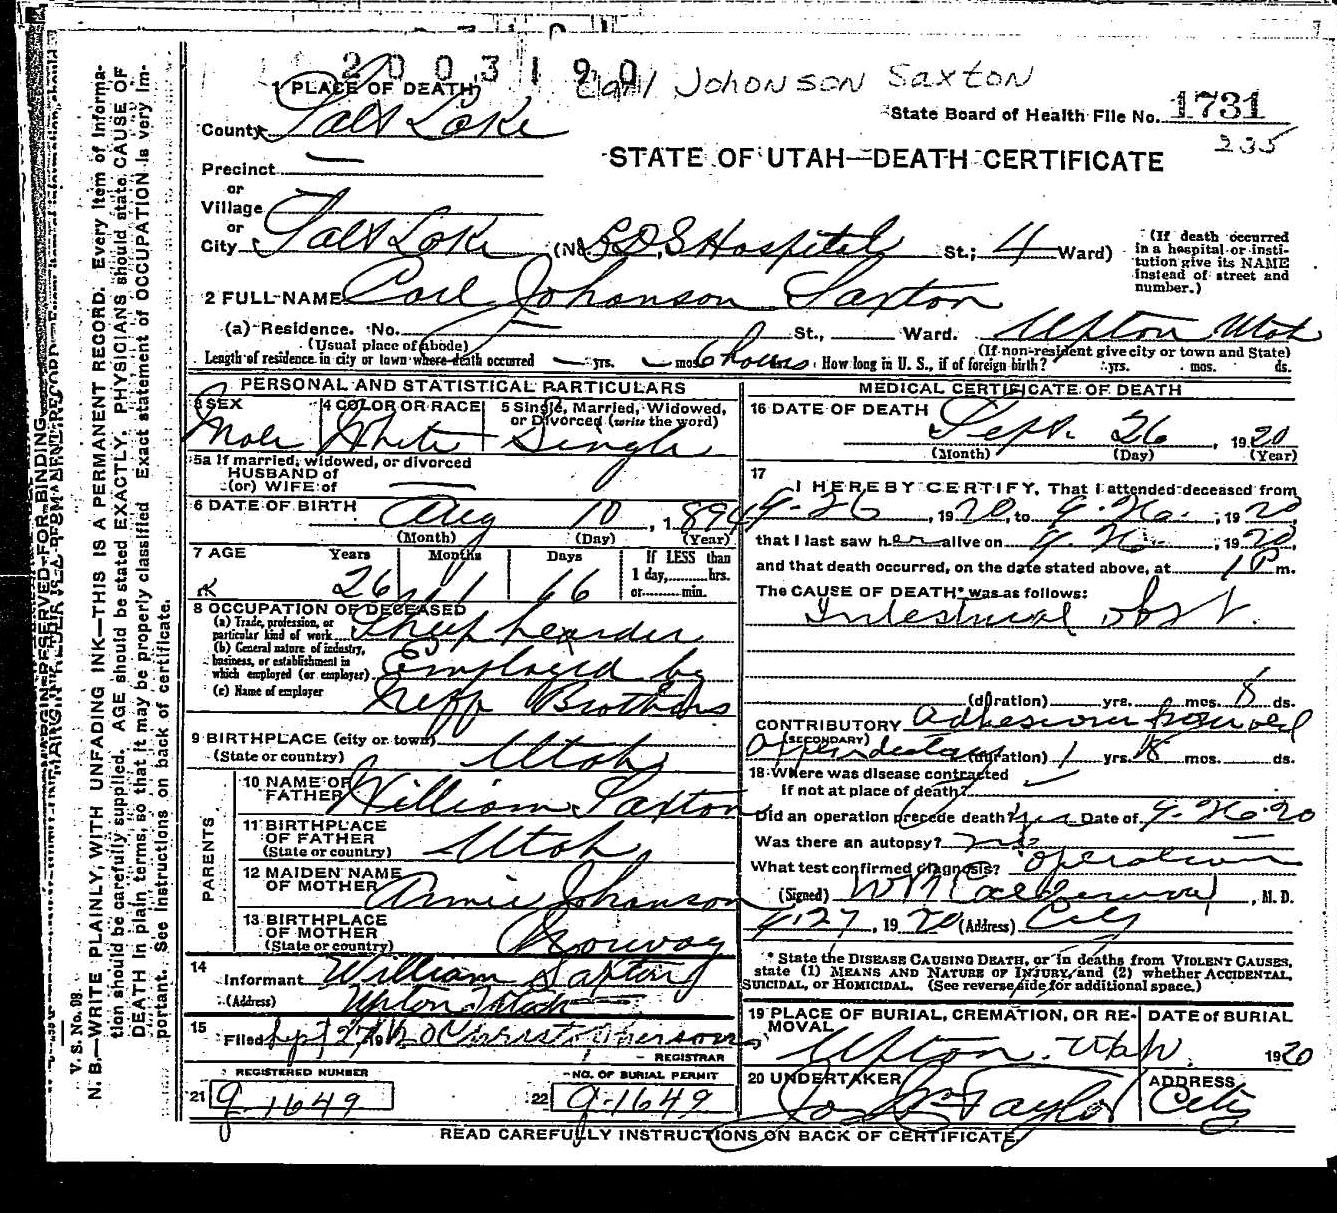 2003190 Carl Johonson Saxton
1 PLACE OF DEATH
State Board of Health File No. 1731
County Salt Lake
235
STATE OF UTAH—DEATH CERTIFICATE
Precinct —
or
Village
or
City Salt Lake (No. LDS Hospital St.; 4 Ward)
(If death occurred in a hospital or institution give its NAME instead of street and number.)
2 FULL NAME Carl Johanson Saxton
(a) Residence. No. — St., Ward. Upton Utah
(Usual place of abode) (If non-resident give city or town and State)
Length of residence in city or town where death occurred — yrs. — mos. 6 hours. How long in U. S., if of foreign birth? yrs. mos. ds.
PERSONAL AND STATISTICAL PARTICULARS
3 SEX Male
4 COLOR OR RACE White
5 Single, Married, Widowed, or Divorced (write the word) Single
5a If married, widowed, or divorced
HUSBAND of
(or) WIFE of —
6 DATE OF BIRTH Aug 10, 1894
(Month) (Day) (Year)
7 AGE Years Months Days If LESS than
26 1 16 1 day, hrs.
or min.
8 OCCUPATION OF DECEASED
(a) Trade, profession, or particular kind of work Sheep hearder
(b) General nature of industry, business, or establishment in which employed (or employer) Employed by
(c) Name of employer Neff Brothers
9 BIRTHPLACE (city or town)
(State or country) Utah
PARENTS
10 NAME OF FATHER William Saxton
11 BIRTHPLACE OF FATHER
(State or country) Utah
12 MAIDEN NAME OF MOTHER Annie Johanson
13 BIRTHPLACE OF MOTHER
(State or country) Norway
14 Informant William Saxton
(Address) Upton Utah
15 Filed Sept 27 19
REGISTRAR
REGISTERED NUMBER
21 9-1649
NO. OF BURIAL PERMIT
22 9-1649
MEDICAL CERTIFICATE OF DEATH
16 DATE OF DEATH Sept. 26, 1920
(Month) (Day) (Year)
17
I HEREBY CERTIFY, That I attended deceased from
9-26, 1920, to 9-26-, 1920,
that I last saw her alive on 9-26-, 1920,
and that death occurred, on the date stated above, at m.
The CAUSE OF DEATH* was as follows:
Intestinal obst.
(duration) yrs. mos. 8 ds.
CONTRIBUTORY Adhesions from old
(SECONDARY)
Appendectomy (duration) 1 yrs. 8 mos. ds.
18 Where was disease contracted
If not at place of death?
Did an operation precede death? Yes Date of 9-26-20
Was there an autopsy? no
What test confirmed diagnosis? operation
(Signed) , M. D.
9-27, 1920 (Address) City
* State the DISEASE CAUSING DEATH, or in deaths from VIOLENT CAUSES, state (1) MEANS AND NATURE OF INJURY, and (2) whether ACCIDENTAL, SUICIDAL, or HOMICIDAL. (See reverse side for additional space.)
19 PLACE OF BURIAL, CREMATION, OR REMOVAL Upton. Utah
DATE of BURIAL
1920
20 UNDERTAKER Taylor
ADDRESS City
READ CAREFULLY INSTRUCTIONS ON BACK OF CERTIFICATE
V. S. No. 98.
MARGIN RESERVED FOR BINDING
N. B.—WRITE PLAINLY, WITH UNFADING INK—THIS IS A PERMANENT RECORD. Every item of information should be carefully supplied. AGE should be stated EXACTLY. PHYSICIANS should state CAUSE OF DEATH in plain terms, so that it may be properly classified. Exact statement of OCCUPATION is very important. See instructions on back of certificate.